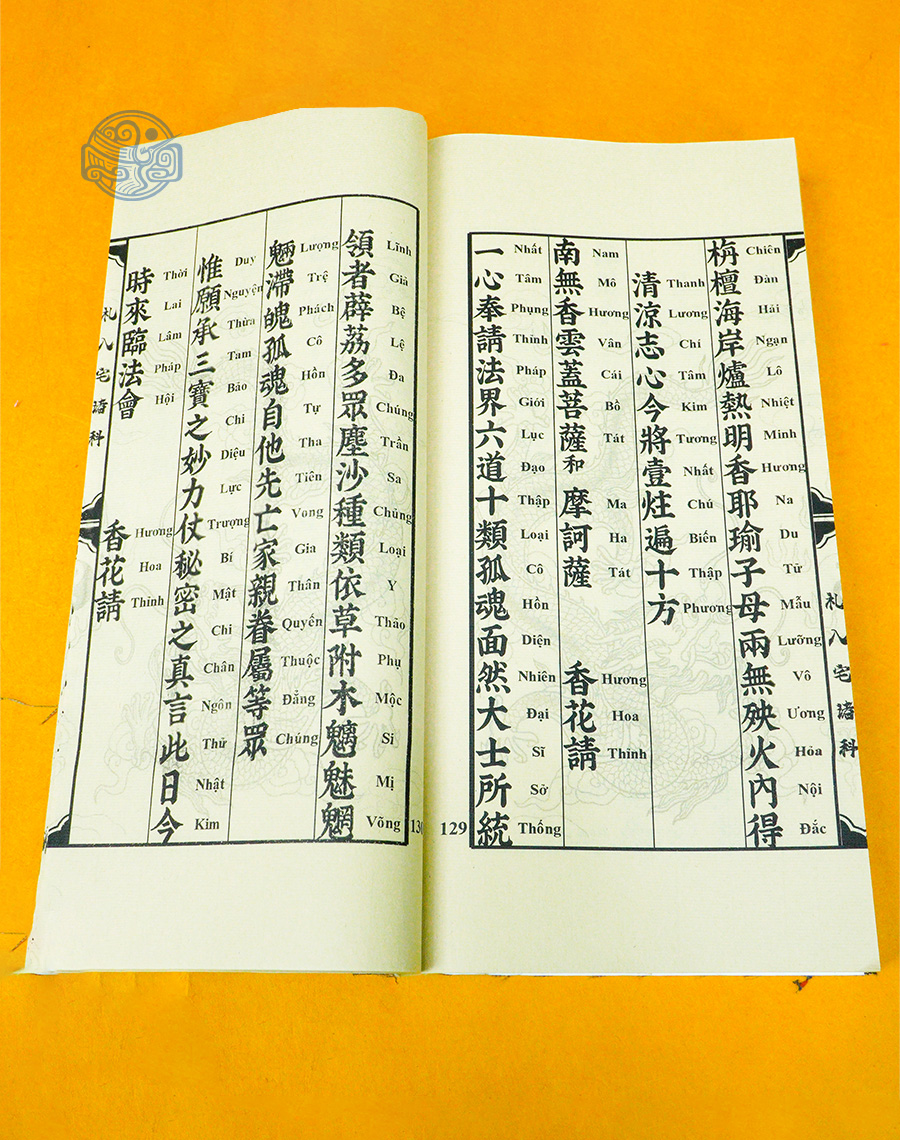 札八宅 科
栴檀海岸爐熱明香耶瑜子母兩無殃火內得
Chiên Đàn Hải Ngạn Lô Nhiệt Minh Hương Na Du Tử Mẫu Lưỡng Vô Ương Hỏa Nội Đắc
清涼志心今將壹炷遍十方
Thanh Lương Chí Tâm Kim Tương Nhất Chú Biến Thập Phương
南無香雲蓋菩薩和 摩訶薩 香花請
Nam Mô Hương Vân Cái Bồ Tát Ma Ha Tát Hương Hoa Thỉnh
一心奉請法界六道十類孤魂面然大士所統
Nhất Tâm Phụng Thỉnh Pháp Giới Lục Đạo Thập Loại Cô Hồn Diện Nhiên Đại Sĩ Sở Thống
129
130
領者薜荔多眾塵沙種類依草附木魑魅魍
Lĩnh Giả Bệ Lệ Đa Chúng Trần Sa Chủng Loại Y Thảo Phụ Mộc Si Mị Võng
魎滯魄孤魂自他先亡家親眷屬等眾
Lượng Trệ Phách Cô Hồn Tự Tha Tiên Vong Gia Thân Quyến Thuộc Đẳng Chúng
惟願承三寶之妙力仗秘密之真言此日今
Duy Nguyện Thừa Tam Bảo Chi Diệu Lực Trượng Bí Mật Chi Chân Ngôn Thử Nhật Kim
時來臨法會 香花請
Thời Lai Lâm Pháp Hội Hương Hoa Thỉnh
札八宅 科